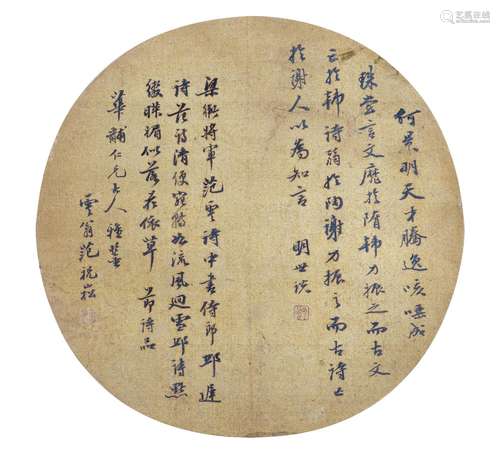 何景明天才騰逸咳唾成
珠嘗言文靡於隋韓力振之而古文
亡於韓詩弱於陶謝力振之而古詩亡
於謝人以為知言 明世說
梁衛將軍范雲詩中書侍郎邱遲
詩范詩清便宛轉如流風迴雪邱詩點
綴暎媚似落花依草 節詩品
黼仁兄大人雅鑒
雲翁范祝崧